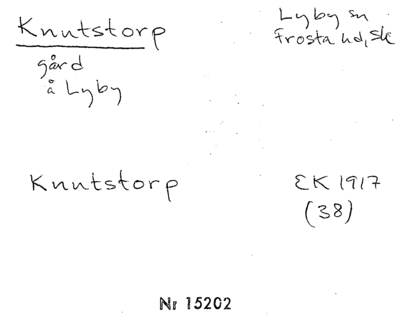 Knutstorp
Lyby sn
Frosta hd, Sk
gård
å Lyby
Knutstorp
EK 1917
(38)
Nr 15202